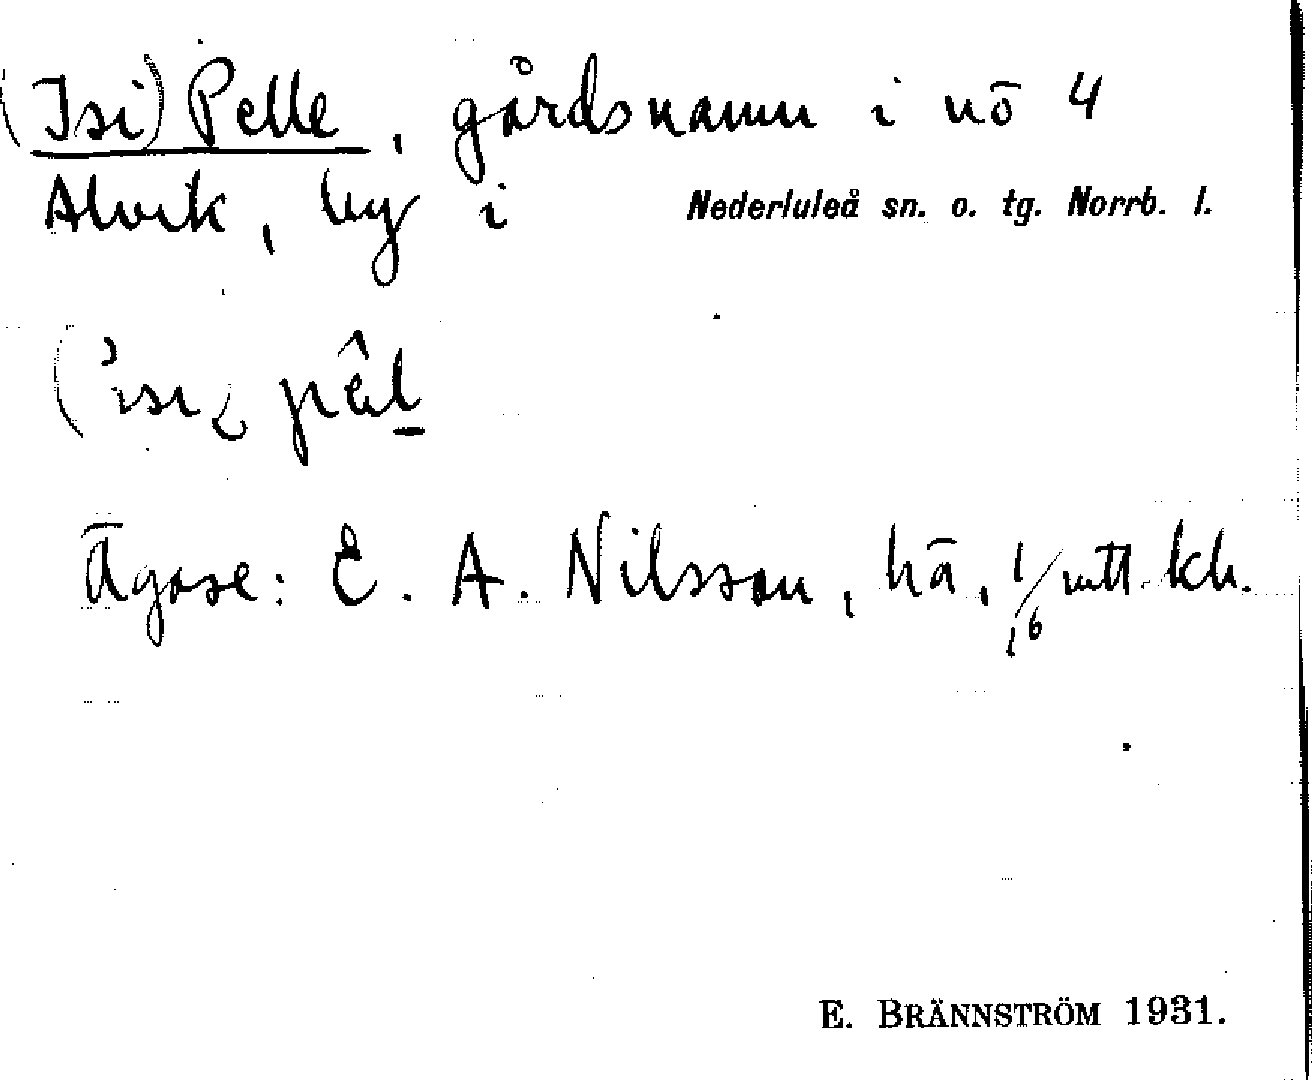 (Isi) Pelle, gårdsnamn i nö 4
Alvik, by i Nederluleå sn. o. tg. Norrb. l.
Ägare: E. A. Nilsson, hä, 1/16 mtl kh.
E. BRÄNNSTRÖM 1931.